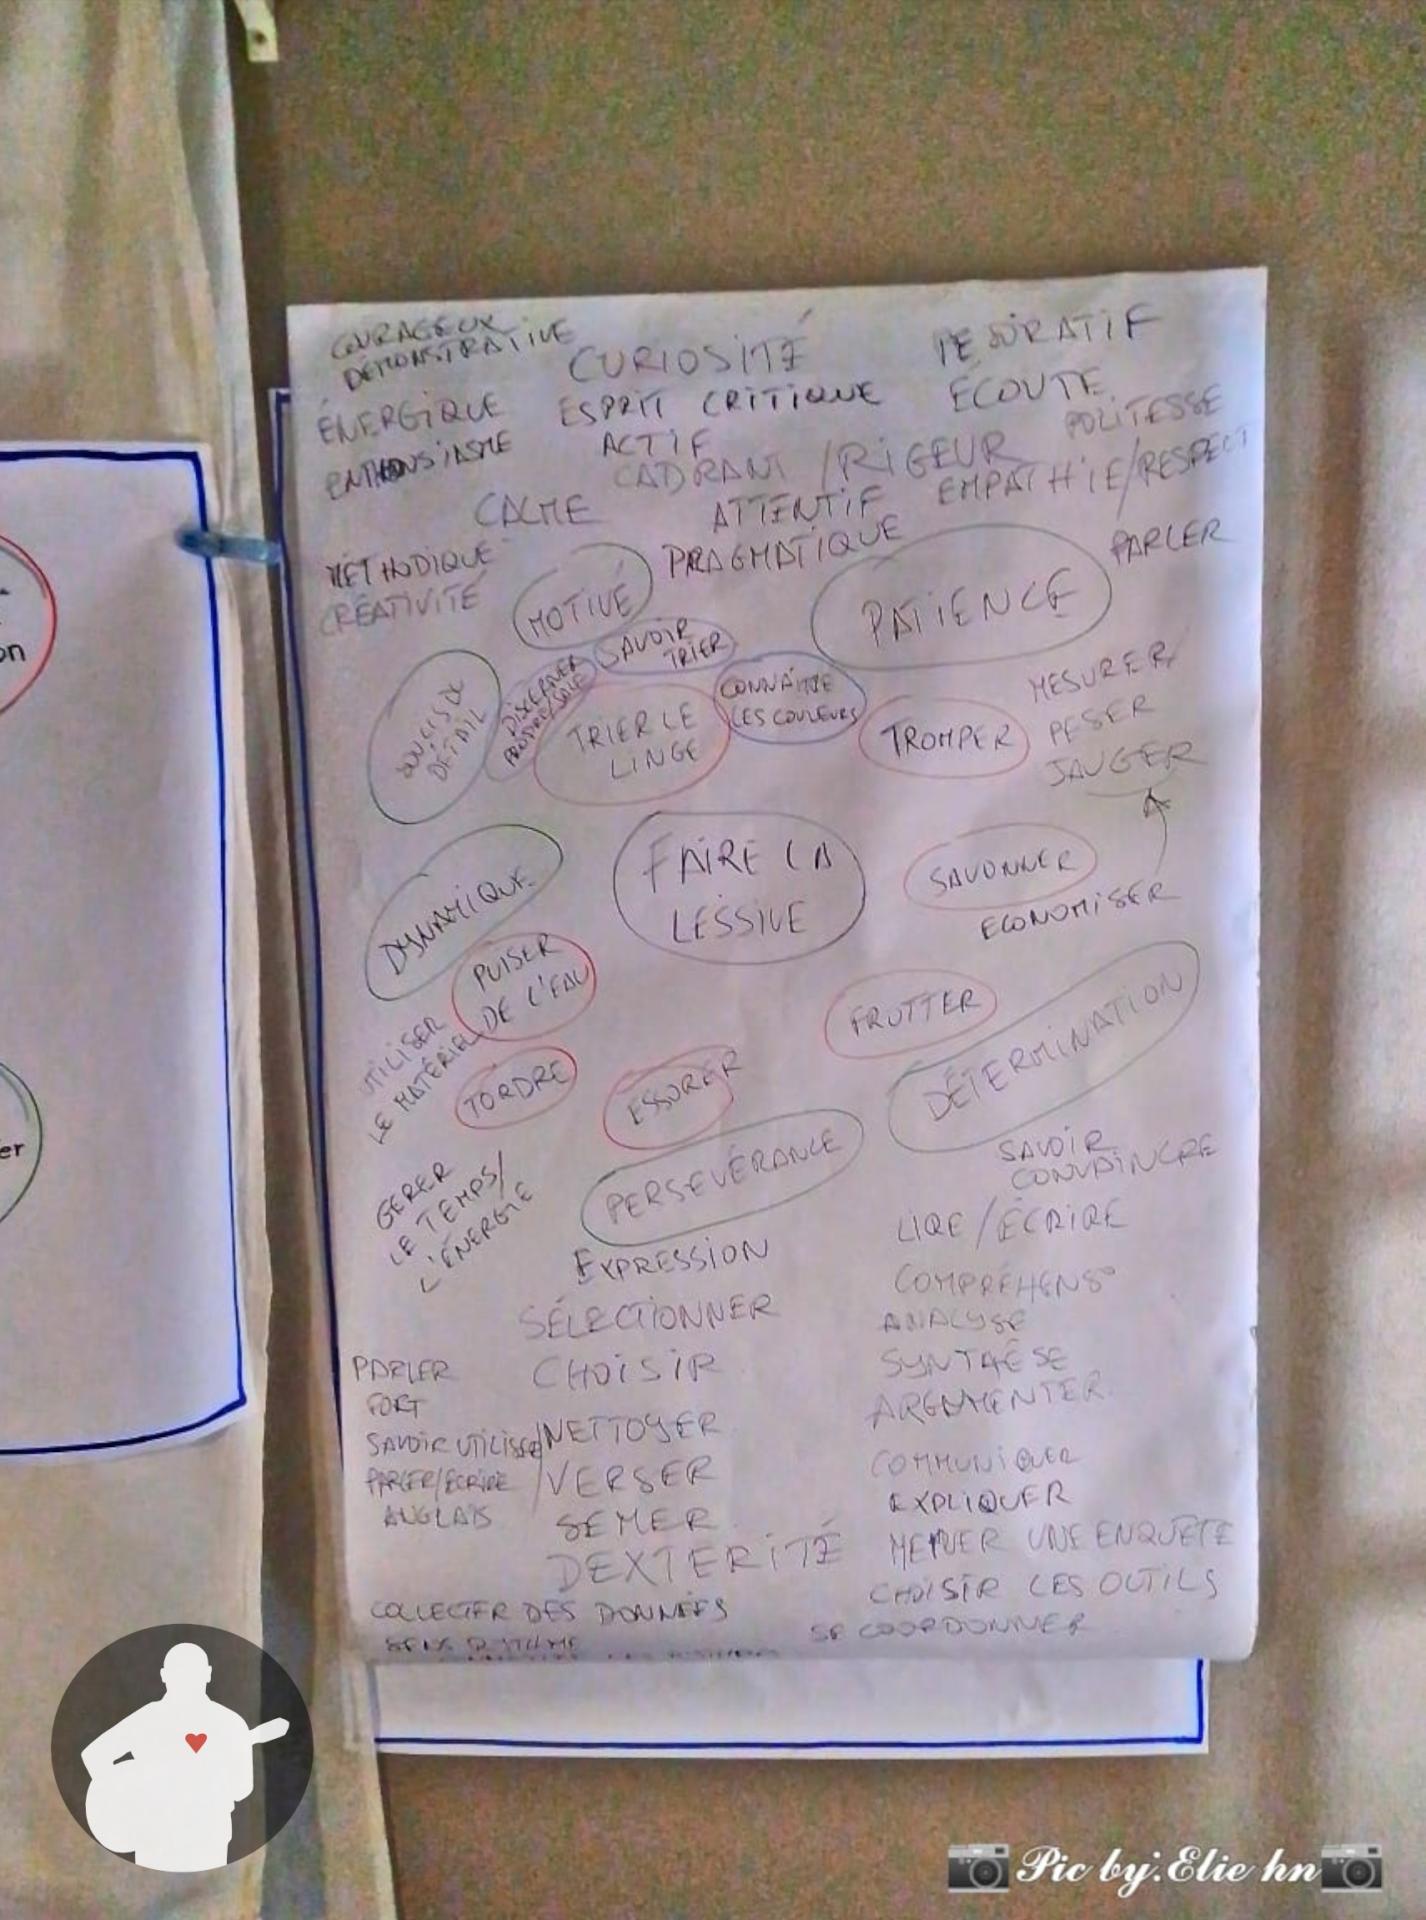 COURAGEUX
DÉMONSTRATIVE
CURIOSITÉ
ÉNERGIQUE
ESPRIT CRITIQUE
ÉCOUTE
ENTHOUSIASME
ACTIF
POLITESSE
CADRANT / RIGEUR
EMPATHIE/RESPECT
CALME
ATTENTIF
MÉTHODIQUE
PRAGMATIQUE
PARLER
CRÉATIVITÉ
MOTIVÉ
PATIENCE
SAVOIR
TRIER
DISCERNER
PROPRE/SALE
CONNAÎTRE
LES COULEURS
DÉTAIL
TRIER LE
LINGE
TROMPER
MESURER
PESER
JAUGER
FAIRE LA
LESSIVE
SAVONNER
ECONOMISER
DYNAMIQUE
PUISER
DE L'EAU
FRUTTER
DÉTERMINATION
UTILISER
LE MATÉRIEL
TORDRE
ESSORER
PERSEVÉRANCE
SAVOIR
CONVAINCRE
GERER
LE TEMPS/
L'ÉNERGIE
LIRE / ÉCRIRE
EXPRESSION
COMPRÉHENS°
SÉLECTIONNER
ANALYSE
PARLER
FORT
CHOISIR
SYNTHÈSE
ARGUMENTER
SAVOIR UTILISER/NETTOYER
PARLER/ÉCRIRE
ANGLAIS
/VERSER
SEMER
COMMUNIQUER
EXPLIQUER
DEXTERITÉ
MENER UNE ENQUÊTE
CHOISIR LES OUTILS
COLLECTER DES DONNÉES
SE COORDONNER
on
er
Pic by:Elie hn